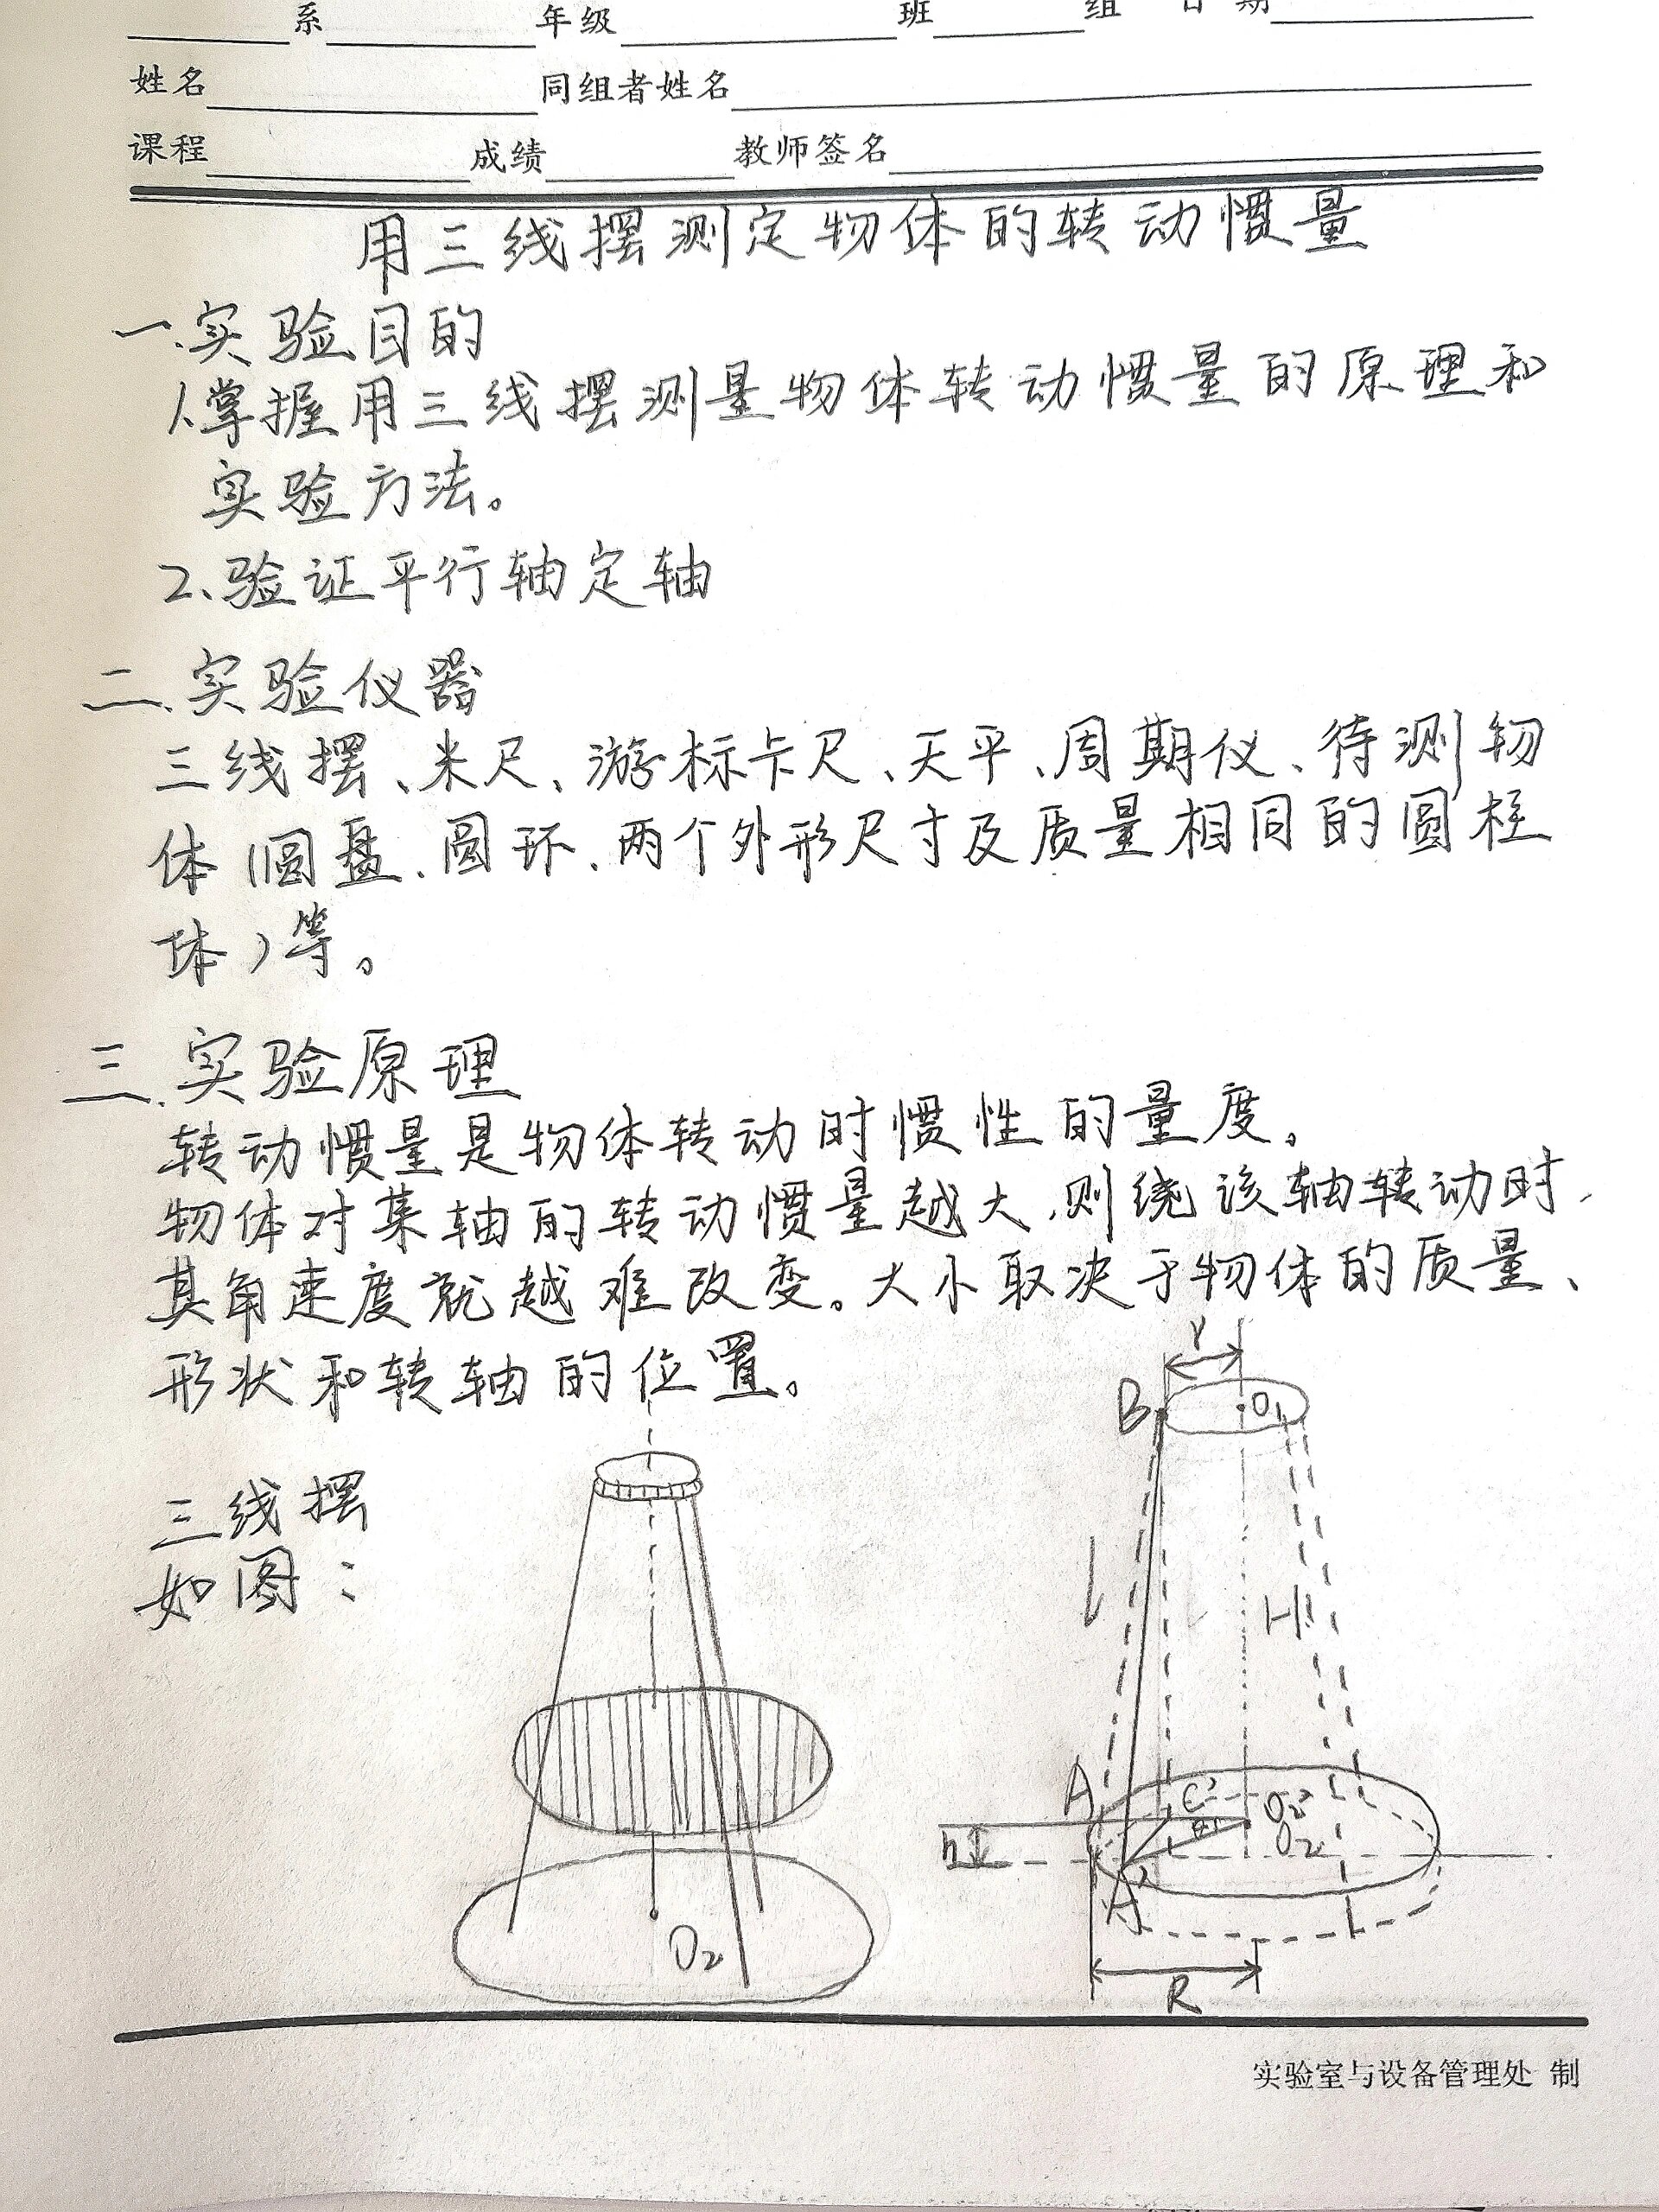 系 年级 班 组 日期
姓名 同组者姓名
课程 成绩 教师签名
用三线摆测定物体的转动惯量
一.实验目的
1.掌握用三线摆测量物体转动惯量的原理和
实验方法。
2、验证平行轴定轴
二.实验仪器
三线摆、米尺、游标卡尺、天平、周期仪、待测物
体(圆盘、圆环、两个外形尺寸及质量相同的圆柱
体)等。
三.实验原理
转动惯量是物体转动时惯性的量度。
物体对某轴的转动惯量越大,则绕该轴转动时,
其角速度就越难改变。大小取决于物体的质量、
形状和转轴的位置。
三线摆
如图:
O₂
r
B O₁
l H
A C' O₂'
h O₂
A'
R
实验室与设备管理处 制